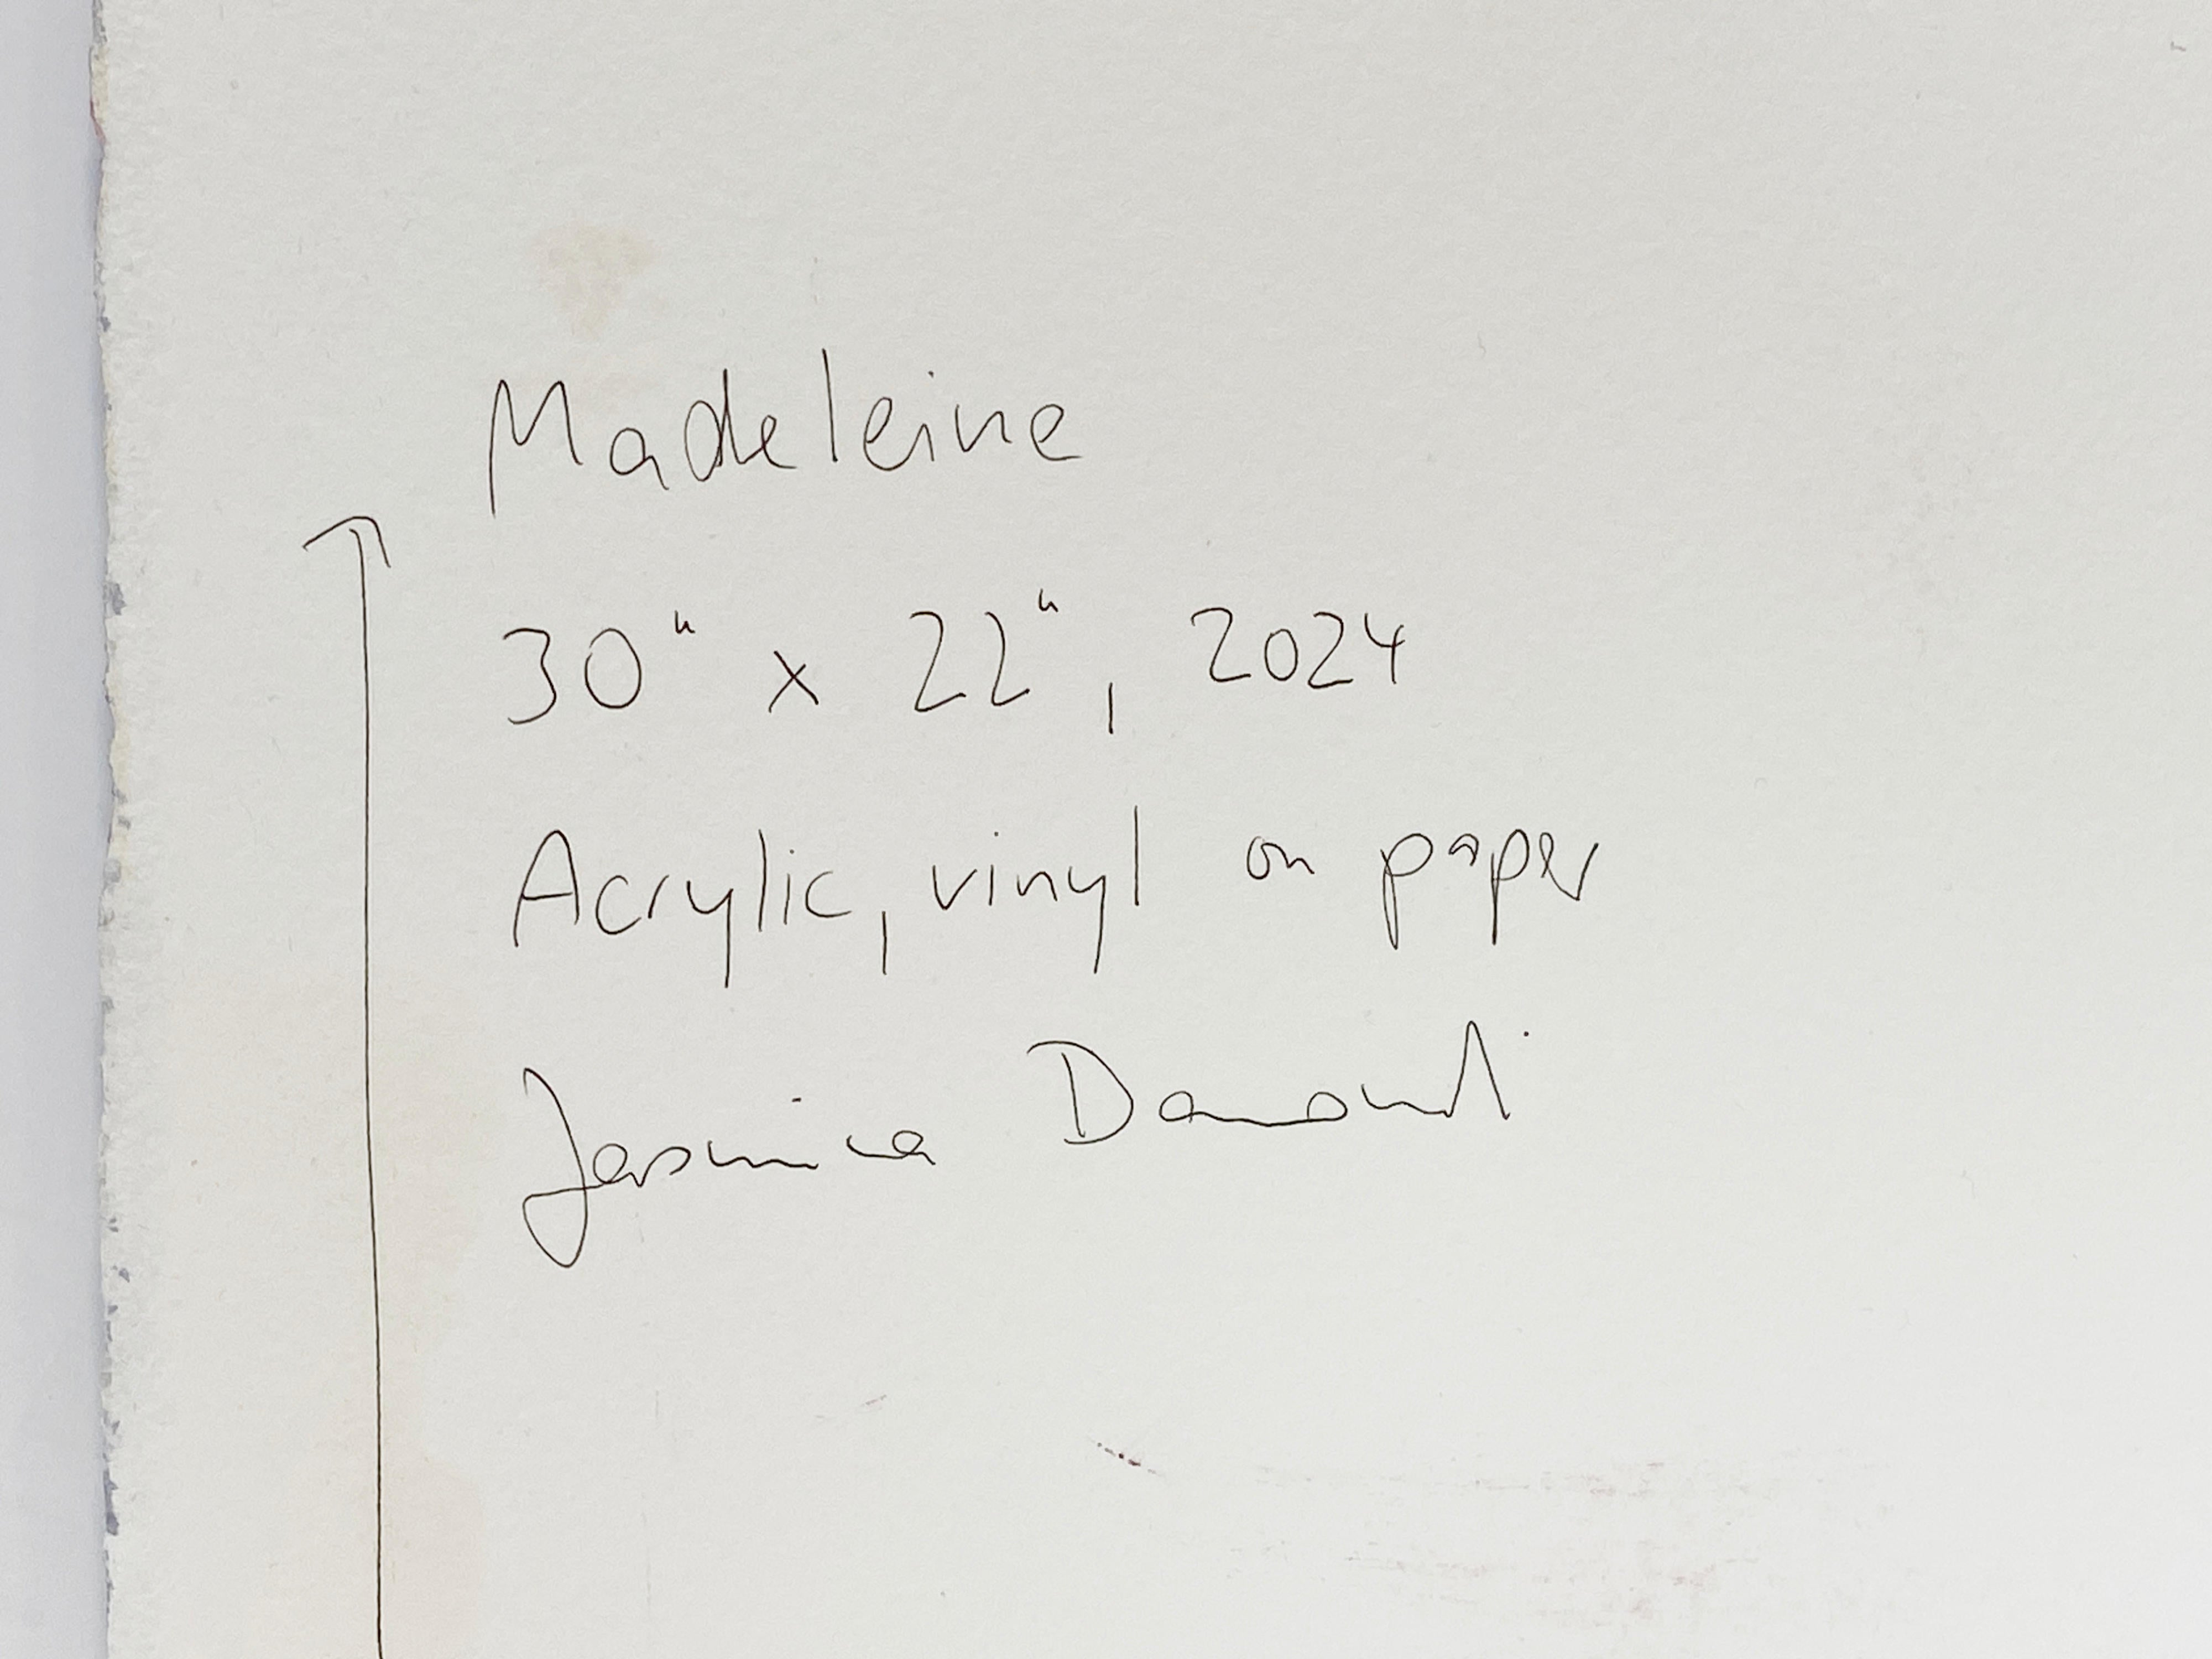 Madeleine
30" x 22", 2024
Acrylic, vinyl on paper
Jasmina